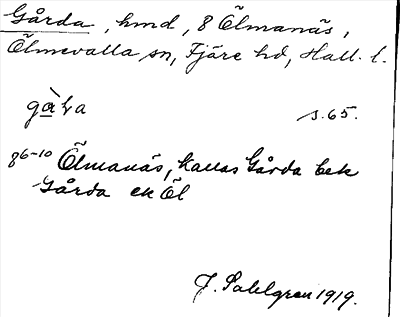 Gårda, hmd, 8 Ölmanäs,
Ölmevalla sn, Fjäre hd, Hall. l.
s. 65.
86-10 Ölmanäs, kallas Gårda bek
Gårda ek Öl
J. Sahlgren 1919.